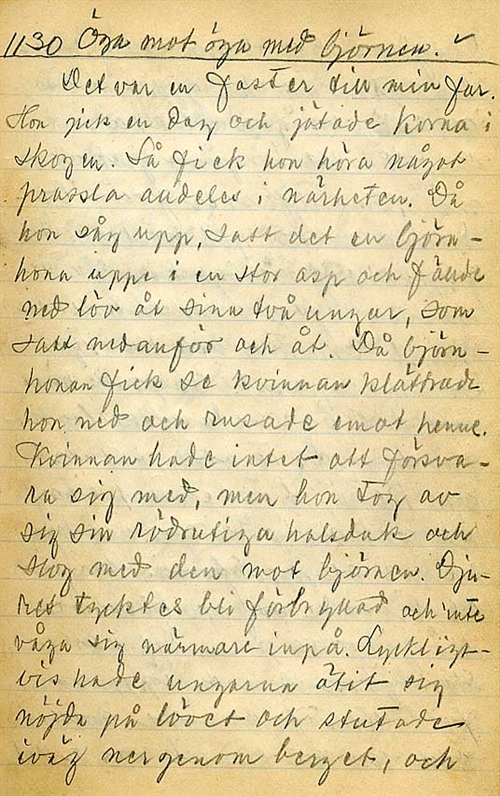 1130 Öga mot öga med björnen.
Det var en faster till min far.
Hon gick en dag och jätade korna i
skogen. Så fick hon höra något
prassla alldeles i närheten. Då
hon såg upp, satt det en björn-
hona uppe i en stor asp och fällde
ned löv åt sina två ungar, som
satt nedanför och åt. Då björn-
honan fick se kvinnan klättrade
hon ned och rusade emot henne.
Kvinnan hade intet att försva-
ra sig med, men hon tog av
sig sin rödrutiga halsduk och
slog med den mot björnen. Dju-
ret tycktes bli förbryllad och inte
våga sig närmare inpå. Lyckligt-
vis hade ungarna ätit sig
nöjda på lövet och stutade
iväg ner genom berget, och